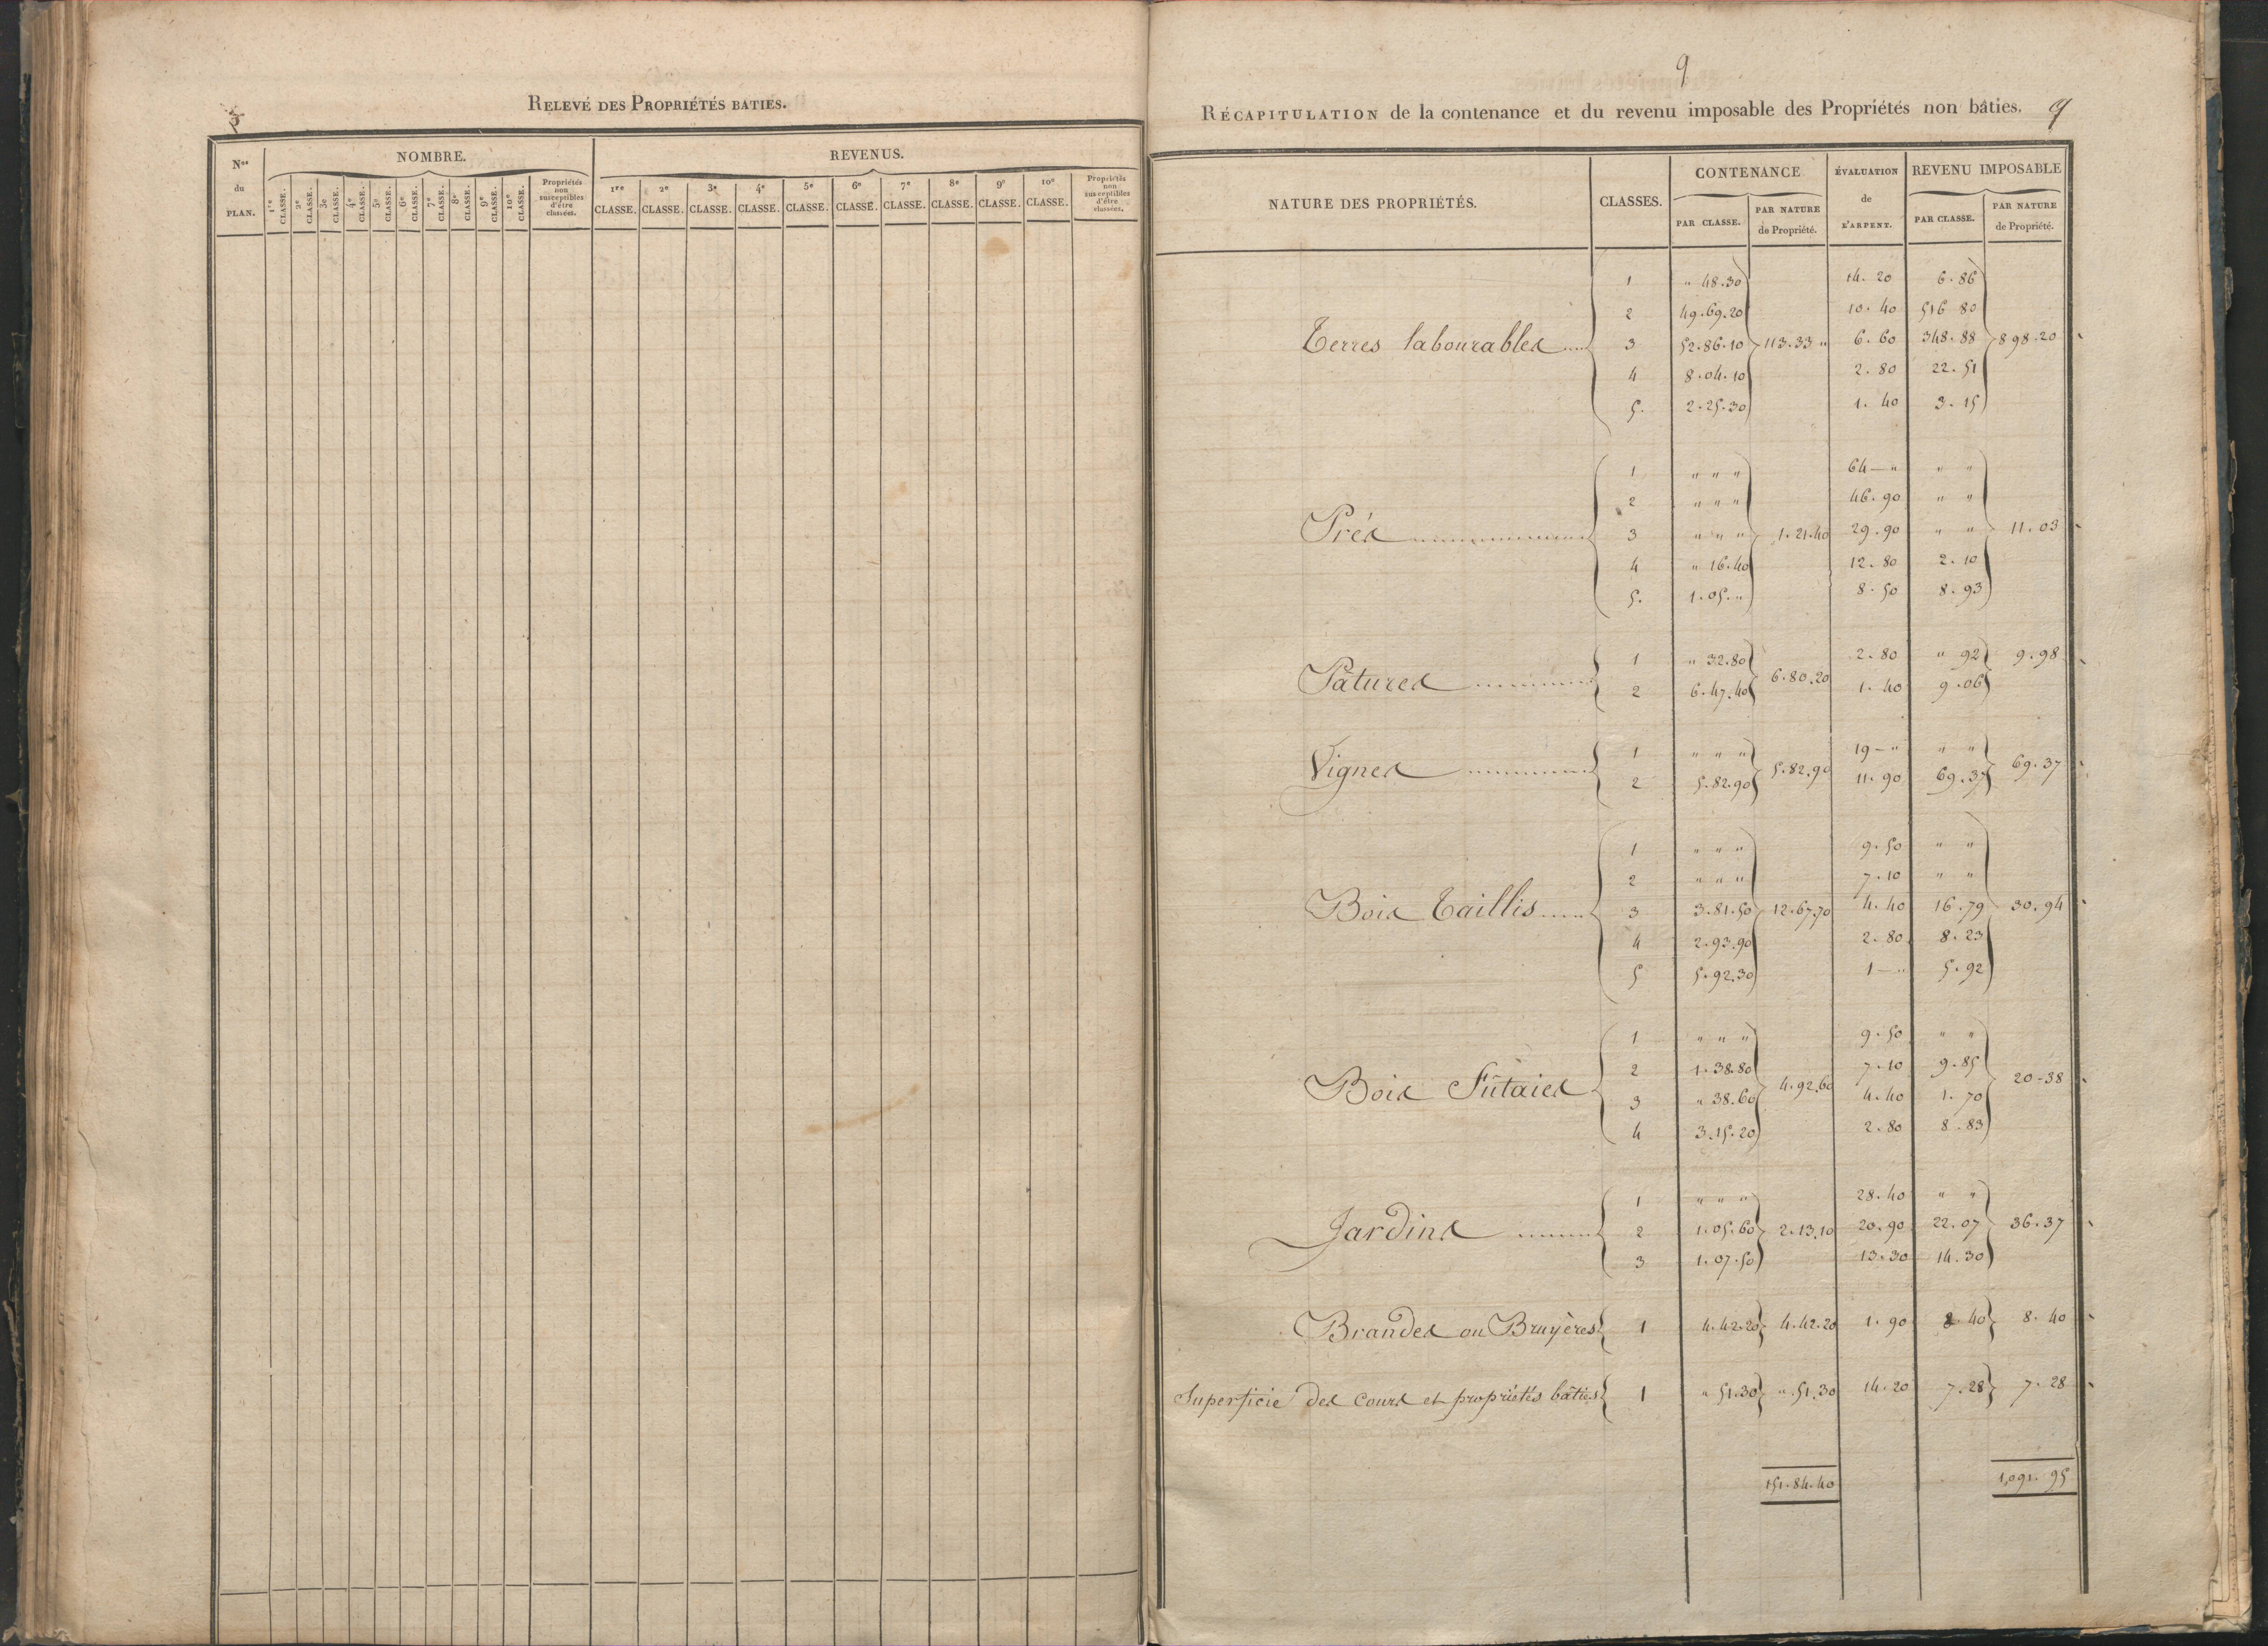 RELEVÉ DES PROPRIÉTÉS BATIES.
Nos du PLAN.
NOMBRE.
1re CLASSE. 2e CLASSE. 3e CLASSE. 4e CLASSE. 5e CLASSE. 6e CLASSE. 7e CLASSE. 8e CLASSE. 9e CLASSE. 10e CLASSE. Propriétés non susceptibles d'être classées.
REVENUS.
1re CLASSE. 2e CLASSE. 3e CLASSE. 4e CLASSE. 5e CLASSE. 6e CLASSE. 7e CLASSE. 8e CLASSE. 9e CLASSE. 10e CLASSE. Propriétés non susceptibles d'être classées.
9
RÉCAPITULATION de la contenance et du revenu imposable des Propriétés non bâties. 9
NATURE DES PROPRIÉTÉS. CLASSES. CONTENANCE ÉVALUATION de L'ARPENT. REVENU IMPOSABLE
PAR CLASSE. PAR NATURE de Propriété. PAR CLASSE. PAR NATURE de Propriété.
1 " 48.30 14. 20 6. 86
2 49.69.20 10. 40 516 80
Terres labourables 3 52.86.10 113.33 " 6. 60 348. 88 898.20
4 8.04.10 2. 80 22. 51
5. 2.25.30 1. 40 3. 15
1 " " " 64 — " " "
2 " " " 46. 90 " "
Prés 3 " " " 1.21.40 29. 90 " " 11.03
4 " 16.40 12. 80 2. 10
5. 1.05. " 8. 50 8. 93
1 " 32.80 2. 80 " 92 9.98
Pâtures 2 6.47.40 6.80.20 1. 40 9.06
1 " " " 19 — " " "
Vignes 2 5.82.90 5.82.90 11. 90 69.37 69.37
1 " " " 9. 50 " "
2 " " " 7. 10 " "
Bois Taillis 3 3.81.50 12.67.70 4. 40 16.79 30.94
4 2.93.90 2. 80 8. 23
5 5.92.30 1 — " 5. 92
1 " " " 9. 50 " "
2 1.38.80 7. 10 9.85
Bois Fûtaies 3 " 38.60 4.92.60 4. 40 1. 70 20-38
4 3.15.20 2. 80 8. 83
1 " " " 28. 40 " "
Jardins 2 1.05.60 2.13.10 20. 90 22.07 36.37
3 1.07.50 13. 30 14.30
Brandes ou Bruyères 1 4.42.20 4.42.20 1. 90 8. 40 8. 40
Superficie des cours et propriétés bâties 1 " 51.30 " 51.30 14. 20 7.28 7. 28
151.84.40 1,091. 95